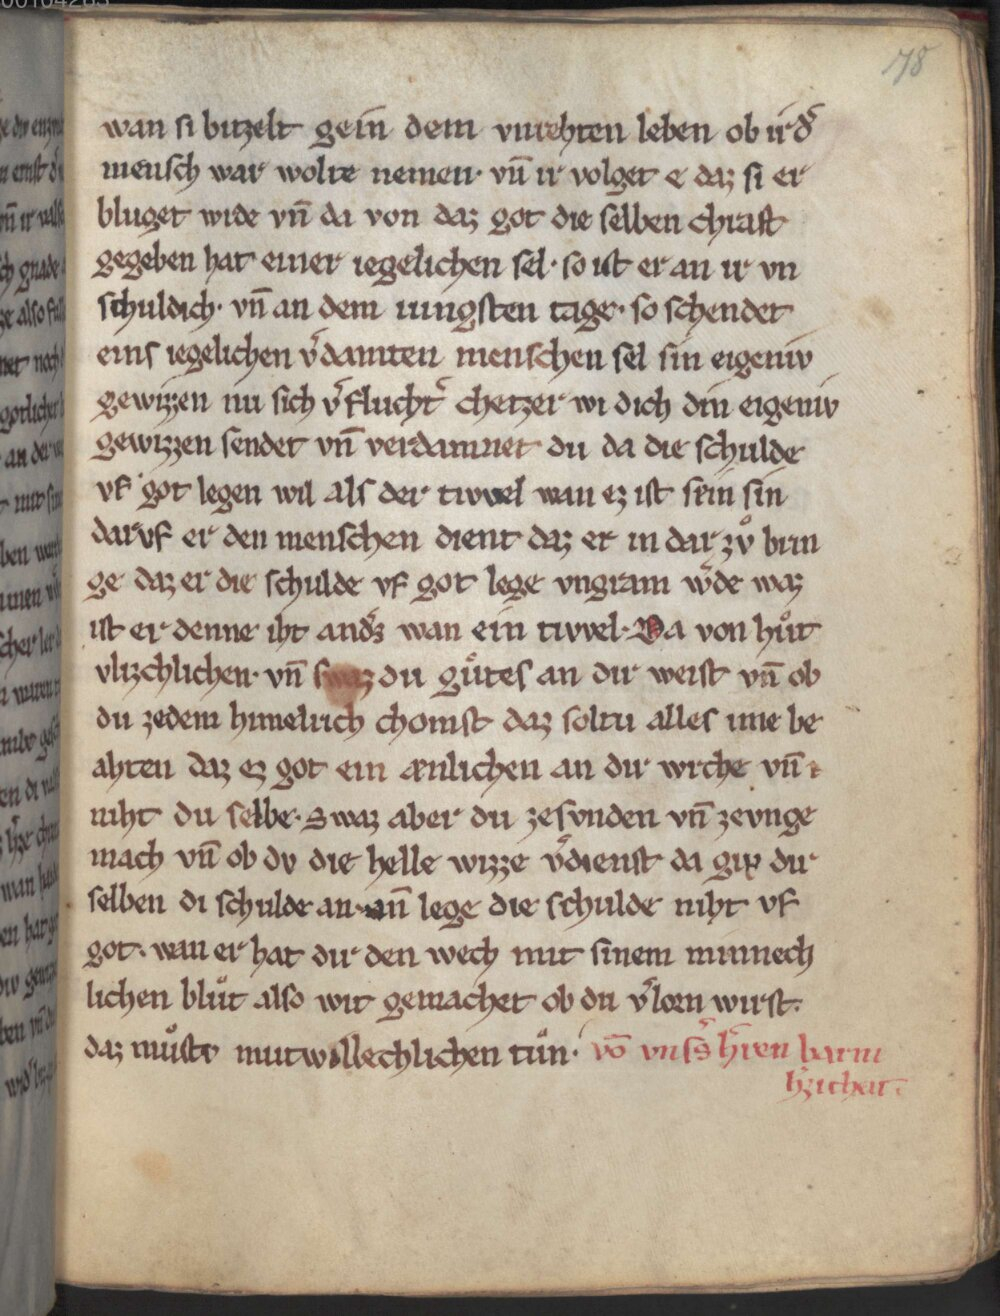 178
wan si bitzelt gein dem vnrehten leben ob ir d͛
mensch war wolte nemen· vn̄ ir volget e daz si er
bluget wide vn̄ da von daz got die selben chraft
gegeben hat einer iegelichen sel· so ist er an ir vn
schuldich· vn̄ an dem iungsten tage· so schendet
eins iegelichen v͛damten menschen sel sin eigeniv
gewizzen nu sich v͛flucht͛ chetzer wi dich din eigeniv
gewizzen sendet vn̄ verdamnet du da die schulde
vf got legen wil als der tiwel wan ez ist sein sin
dar vf er den menschen dient daz er in dar zvͦ brin
ge daz er die schulde vf got lege vngram w͛de waz
ist er denne iht and͛s wan ein tiwel· Da von huͤt
vlizchlichen· vn̄ swaz du guͤtes an dir weist vn̄ ob
du zedem himelrich chomst daz soltu alles ime be
ahten daz ez got ein ænlichen an dir wrche vn̄
niht du selbe· Swaz aber du zesvnden vn̄ zevnge
mach vn̄ ob dv die helle wizze v͛dienst da gip dir
selben di schulde an· vn̄ lege die schulde niht vf
got· wan er hat dir den wech mit sinem minnech
lichen bluͤt also wit gemachet ob du v͛lorn wirst·
daz muͦstv mutwillechlichen tuͦn· vō vns͛s h͛ren barm
h͛zichait·